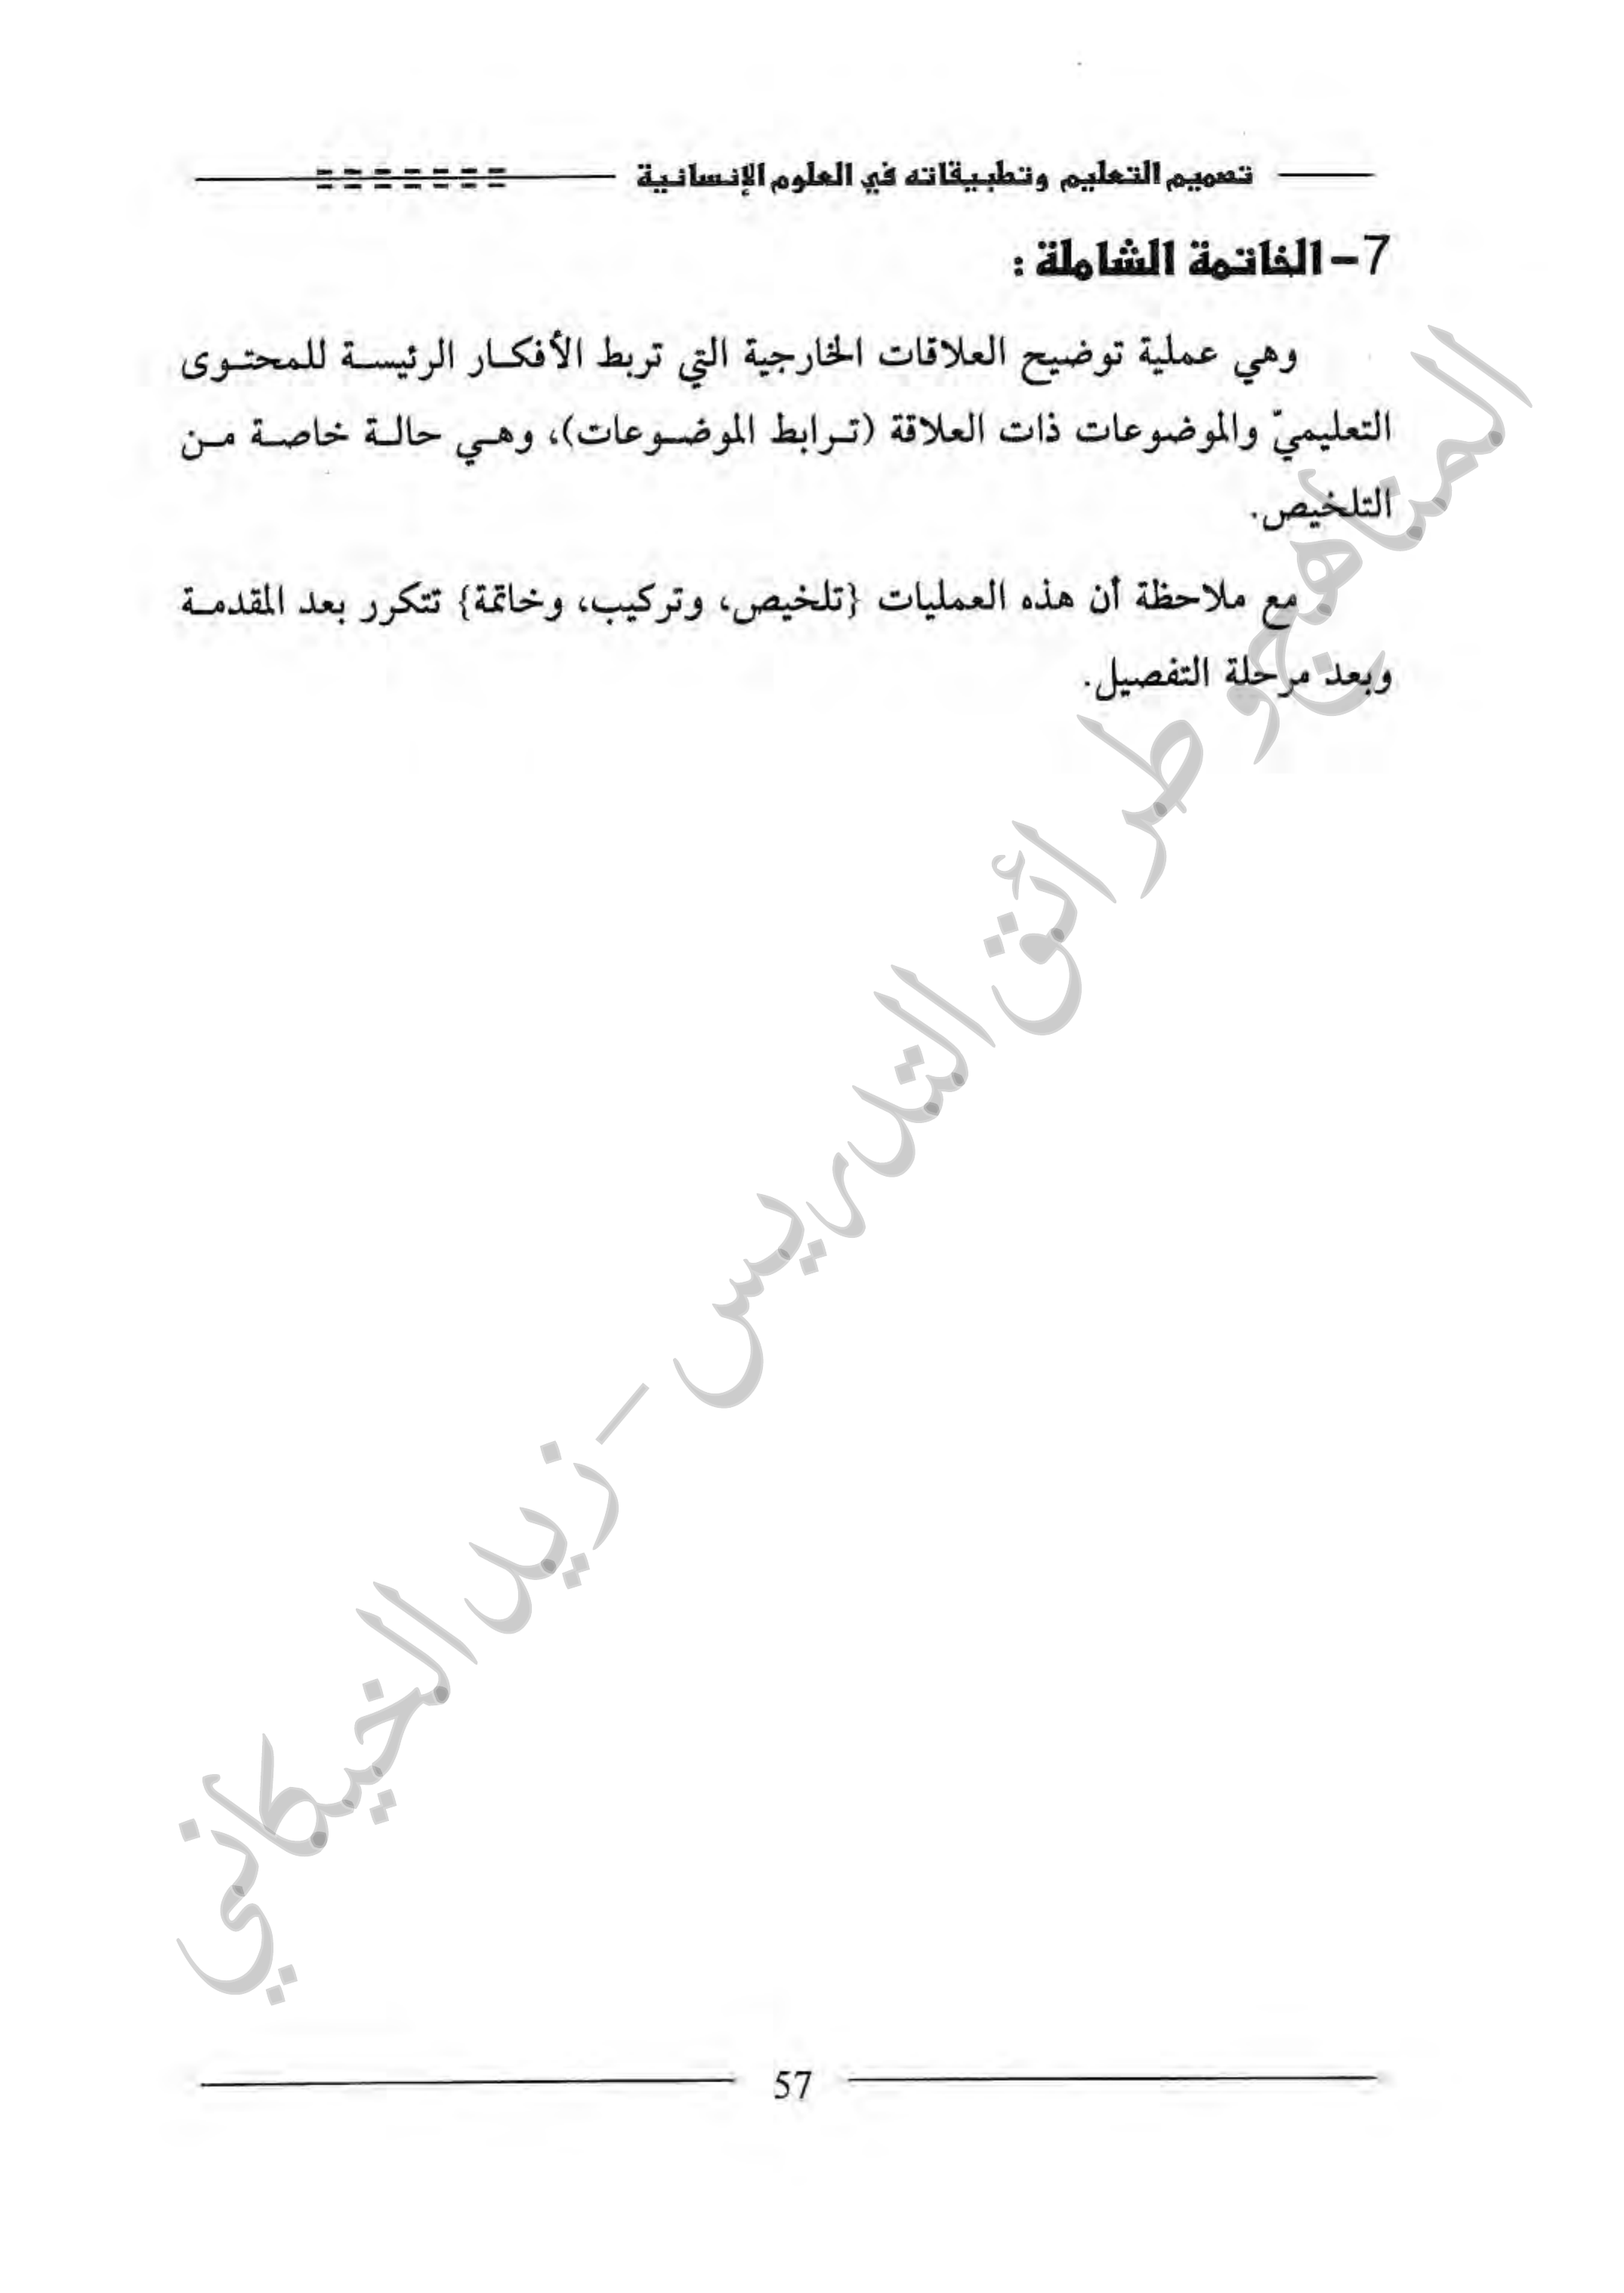 تصميم التعليم وتطبيقاته في العلوم الإنسانية
7- الخاتمة الشاملة :
وهي عملية توضيح العلاقات الخارجية التي تربط الأفكار الرئيسة للمحتوى
التعليميّ والموضوعات ذات العلاقة (ترابط الموضوعات)، وهي حالة خاصة من
التلخيص.
مع ملاحظة أن هذه العمليات {تلخيص، وتركيب، وخاتمة} تتكرر بعد المقدمة
وبعد مرحلة التفصيل.
المناهج وطرائق التدريس - زيد الخيكاني
57